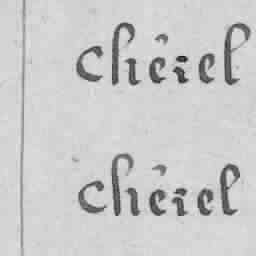 Chéiel
Chéiel